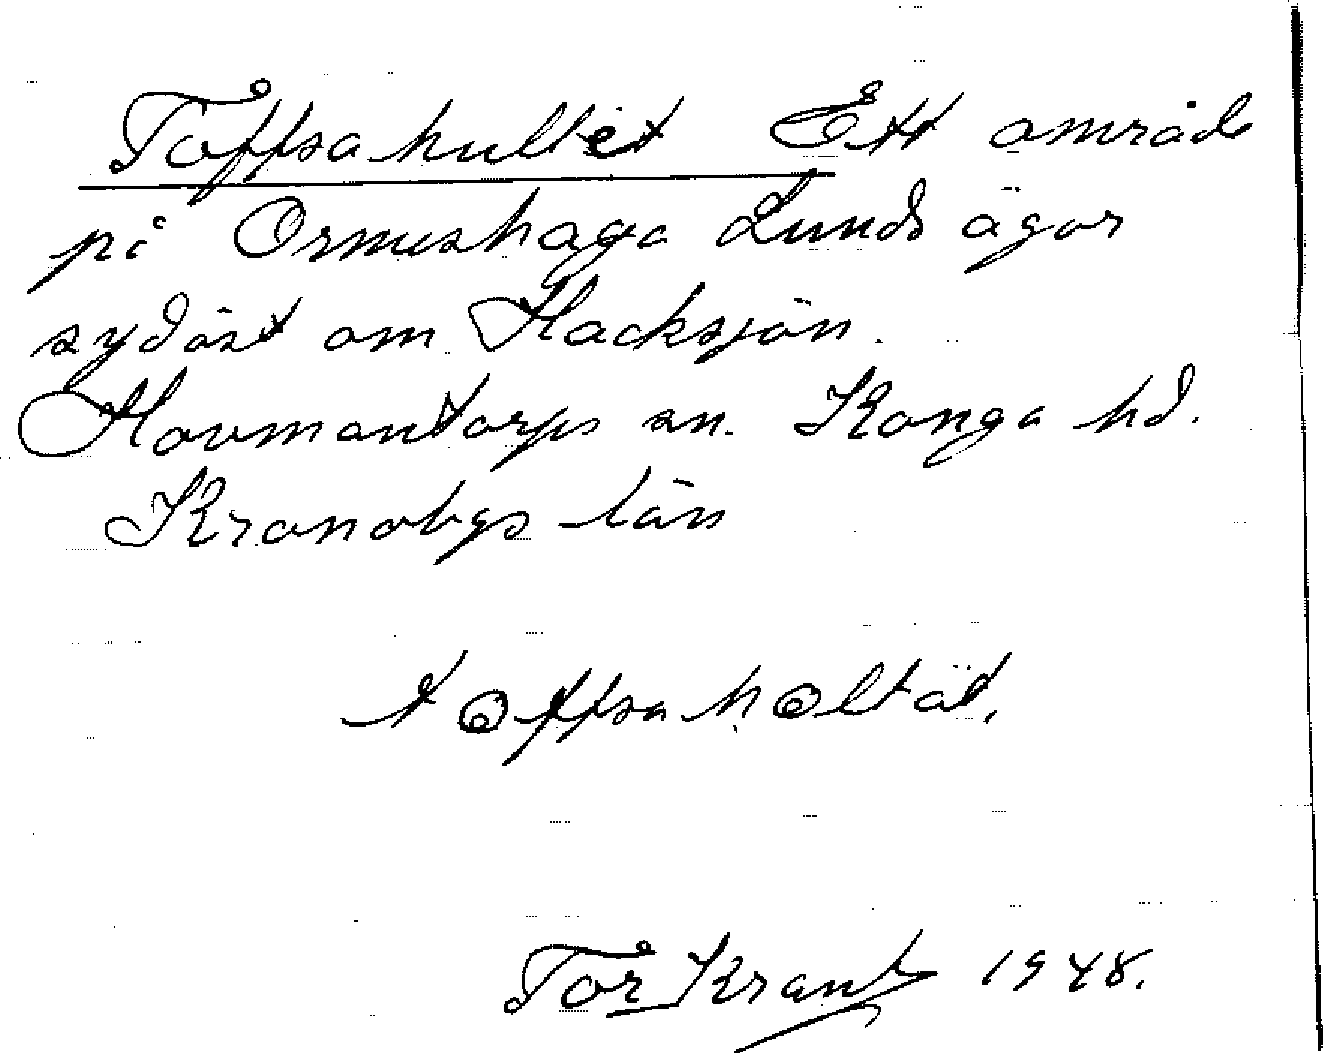 Toffsahultet Ett område
på Ormeshaga Lunds ägor
sydöst om Hacksjön.
Hovmantorps sn. Konga hd.
Kronobgs län
toffsahåltät.
Tor Krantz 1948.